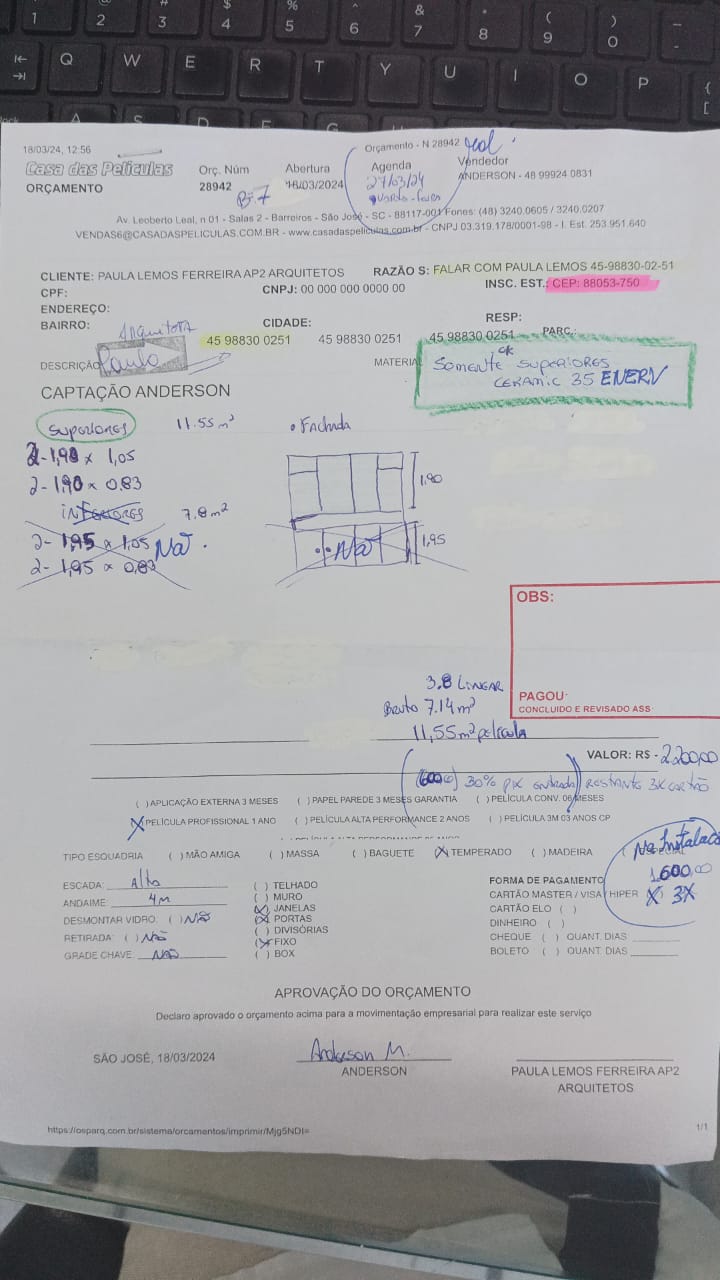 1 2 3 4 5 6 7 8 9 0
# $ % ^ & * ( )
Q W E R T Y U I O P
A S D F G
18/03/24, 12:56
Orçamento - N 28942
Casa das Películas
Orç. Núm Abertura Agenda Vendedor
ORÇAMENTO 28942 18/03/2024 27/03/24 ANDERSON - 48 99924 0831
Av. Leoberto Leal, n 01 - Salas 2 - Barreiros - São José - SC - 88117-001 Fones: (48) 3240.0605 / 3240.0207
VENDAS6@CASADASPELICULAS.COM.BR - www.casadaspeliculas.com.br - CNPJ 03.319.178/0001-98 - I. Est. 253.951.640
CLIENTE: PAULA LEMOS FERREIRA AP2 ARQUITETOS RAZÃO S: FALAR COM PAULA LEMOS 45-98830-02-51
CPF: CNPJ: 00 000 000 0000 00 INSC. EST.: CEP: 88053-750
ENDEREÇO:
BAIRRO: CIDADE: RESP:
Arquiteta 45 98830 0251 45 98830 0251 45 98830 0251 PARC.:
DESCRIÇÃO Paulo MATERIAL
ok
Somente superiores
CERAMIC 35 ENERV
CAPTAÇÃO ANDERSON
superiores 11.55 m²
• Fachada
2-1,90 x 1,05
2-1,90 x 0,83
1,90
inferiores 7,8 m²
2-1,95 x 1,05 Não.
2-1,95 x 0,83
Não 1,95
OBS:
PAGOU
CONCLUIDO E REVISADO ASS
3.8 Linear
Bruto 7.14 m²
11,55 m² película
VALOR: R$ - 2.200,00
(600) 30% pix entrada) restante 3x cartão
( ) APLICAÇÃO EXTERNA 3 MESES ( ) PAPEL PAREDE 3 MESES GARANTIA ( ) PELÍCULA CONV. 06 MESES
X PELÍCULA PROFISSIONAL 1 ANO ( ) PELÍCULA ALTA PERFORMANCE 2 ANOS ( ) PELÍCULA 3M 03 ANOS CP
TIPO ESQUADRIA ( ) MÃO AMIGA ( ) MASSA ( ) BAGUETE (X) TEMPERADO ( ) MADEIRA
Na Instalação
1.600,00
X 3X
ESCADA: Alta
ANDAIME: 4m
DESMONTAR VIDRO: ( ) NÃO
RETIRADA: ( ) NÃO
GRADE CHAVE: NÃO
( ) TELHADO
( ) MURO
(X) JANELAS
(X) PORTAS
( ) DIVISÓRIAS
(X) FIXO
( ) BOX
FORMA DE PAGAMENTO
CARTÃO MASTER / VISA / HIPER
CARTÃO ELO ( )
DINHEIRO ( )
CHEQUE ( ) QUANT. DIAS
BOLETO ( ) QUANT. DIAS
APROVAÇÃO DO ORÇAMENTO
Declaro aprovado o orçamento acima para a movimentação empresarial para realizar este serviço
SÃO JOSÉ, 18/03/2024
Anderson M.
ANDERSON
PAULA LEMOS FERREIRA AP2
ARQUITETOS
https://osparq.com.br/sistema/orcamentos/imprimir/Mjg5NDI=
1/1